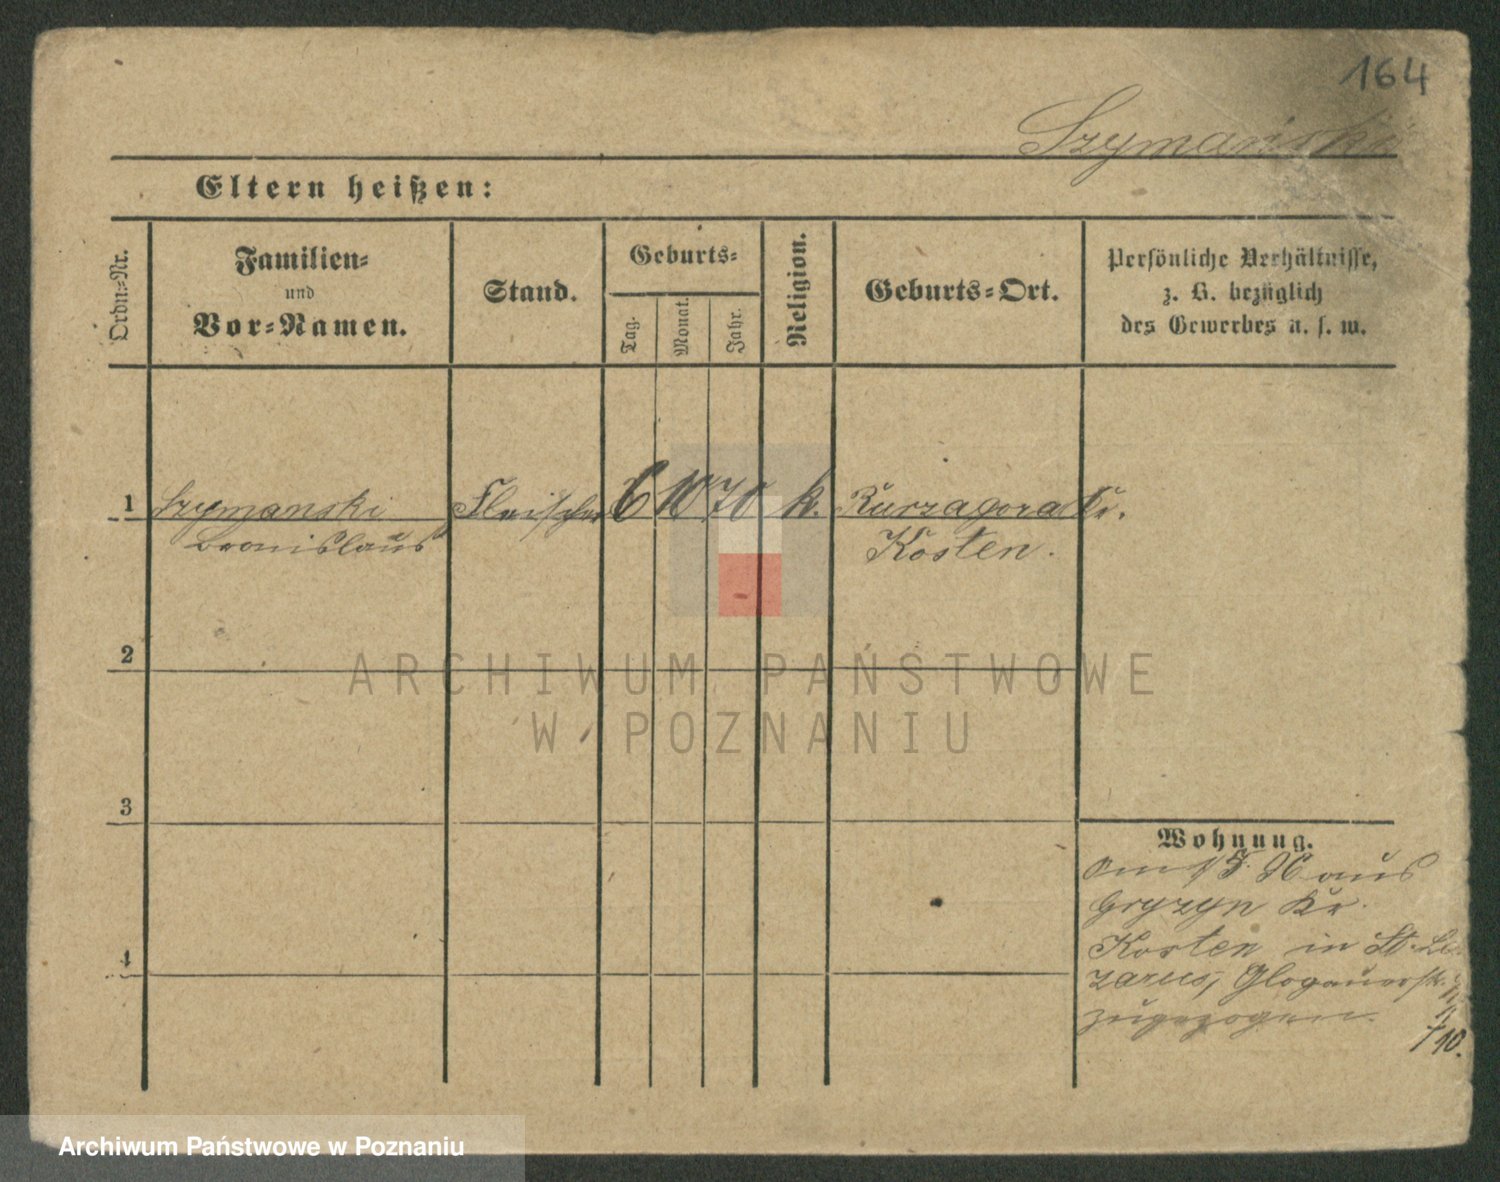 164
Szymański
Eltern heißen:
Ordn.-Nr.
Familien-
und
Vor-Namen.
Stand.
Geburts-
Tag.
Monat.
Jahr.
Religion.
Geburts-Ort.
Persönliche Verhältnisse,
z. B. bezüglich
des Gewerbes u. s. w.
1 Szymanski Fleischer 6 10 70 k. Kurzagora Kr.
Bronislaus Kosten.
2
ARCHIWUM PAŃSTWOWE
W POZNANIU
3
Wohnung.
Am 1/5. 96 aus
Gryzyn Kr.
4
Kosten in St. La-
zarus, Glogauerstr.
zugezogen.
10.
Archiwum Państwowe w Poznaniu